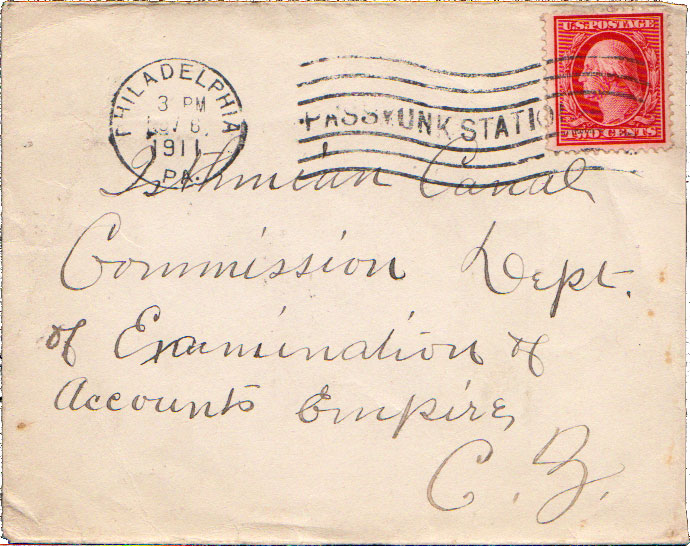 U.S. POSTAGE
TWO CENTS
PHILADELPHIA
3 PM
1911
PA.
PASSYUNK STATIO
Isthmian Canal
Commission Dept.
of Examination of
Accounts Empire,
C. Z.